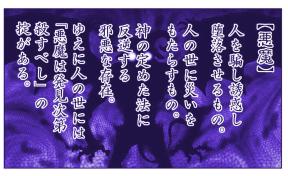 【悪魔】
人を騙し誘惑し
堕落させるもの。
人の世に災いを
もたらすもの。
神の定めた法に
反逆する
邪悪な存在。
ゆえに人の世には
『悪魔は発見次第
殺すべし』の
掟がある。